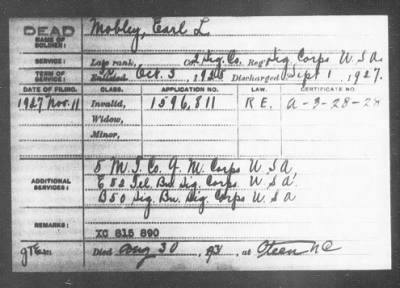 DEAD Mobley, Earl L.
NAME OF SOLDIER:
SERVICE: Late rank, Co. 2 Sig. Co. Reg't Sig. Corps U.S.A.
TERM OF SERVICE: Enlisted Oct. 3, 1926 Discharged Sept 1, 1927.
DATE OF FILING. CLASS. APPLICATION NO. LAW. CERTIFICATE NO.
1927 Nov. 11 Invalid, 1596,811 R.E. A-3-28-28
Widow,
Minor,
ADDITIONAL SERVICES:
5 M.T. Co. Q.M. Corps U.S.A.
E 52 Tel. Bn. Sig. Corps U.S.A.
B 50 Sig. Bn. Sig. Corps U.S.A
REMARKS:
XC 815 890
Died Aug 30, at Oteen N.C.